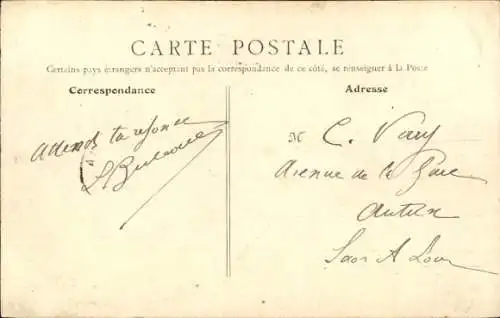 CARTE POSTALE
Certains pays étrangers n'acceptant pas la correspondance de ce côté, se renseigner à la Poste
Correspondance
Adresse
Attends ta réponse
M C.
Avenue de la Gare
Autun
Saon & Loire